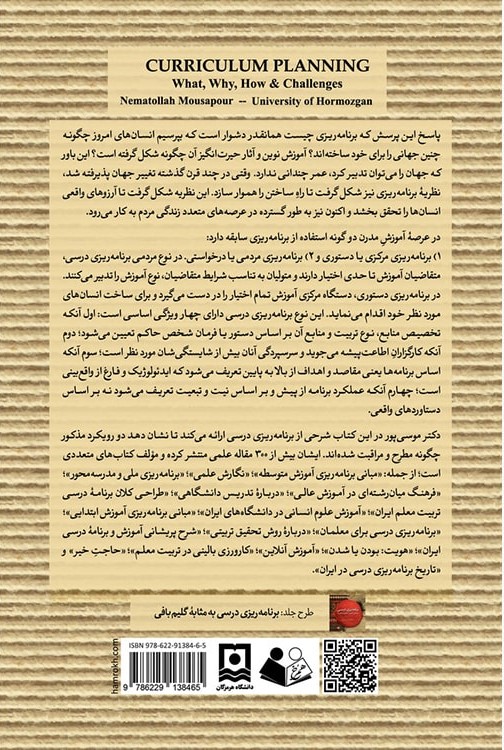 CURRICULUM PLANNING
What, Why, How & Challenges
Nematollah Mousapour -- University of Hormozgan
پاسخ این پرسش که برنامه‌ریزی چیست همانقدر دشوار است که بپرسیم انسان‌های امروز چگونه
چنین جهانی را برای خود ساخته‌اند؟ آموزش نوین و آثار حیرت‌انگیز آن چگونه شکل گرفته است؟ این باور
که جهان را می‌توان تدبیر کرد، عمر چندانی ندارد. وقتی در چند قرن گذشته تغییر جهان پذیرفته شد،
نظریهٔ برنامه‌ریزی نیز شکل گرفت تا راهِ ساختن را هموار سازد. این نظریه شکل گرفت تا آرزوهای واقعی
انسان‌ها را تحقق بخشد و اکنون نیز به طور گسترده در عرصه‌های متعدد زندگی مردم به کار می‌رود.
در عرصهٔ آموزشِ مدرن دو گونه استفاده از برنامه‌ریزی سابقه دارد:
۱) برنامه‌ریزی مرکزی یا دستوری و ۲) برنامه‌ریزی مردمی یا درخواستی. در نوع مردمی برنامه‌ریزی درسی،
متقاضیان آموزش تا حدی اختیار دارند و متولیان به تناسب شرایط متقاضیان، نوع آموزش را تدبیر می‌کنند.
در برنامه‌ریزی دستوری، دستگاه مرکزی آموزش تمام اختیار را در دست می‌گیرد و برای ساخت انسان‌های
مورد نظر خود اقدام می‌نماید. این نوع برنامه‌ریزی درسی دارای چهار ویژگی اساسی است: اول آنکه
تخصیص منابع، نوع تربیت و منابع آن بر اساس دستور یا فرمان شخص حاکم تعیین می‌شود؛ دوم
آنکه کارگزارانِ اطاعت‌پیشه می‌جوید و سرسپردگی آنان بیش از شایستگی‌شان مورد نظر است؛ سوم آنکه
اساس برنامه‌ها یعنی مقاصد و اهداف از بالا به پایین تعریف می‌شود که ایدئولوژیک و فارغ از واقع‌بینی
است؛ چهارم آنکه عملکرد برنامه از پیش و بر اساس نیت و تبعیت تعریف می‌شود نه بر اساس
دستاوردهای واقعی.
دکتر موسی‌پور در این کتاب شرحی از برنامه‌ریزی درسی ارائه می‌کند تا نشان دهد دو رویکرد مذکور
چگونه مطرح و مراقبت شده‌اند. ایشان بیش از ۳۰۰ مقاله علمی منتشر کرده و مؤلف کتاب‌های متعددی
است؛ از جمله: «مبانی برنامه‌ریزی آموزش متوسطه»؛ «نگارش علمی»؛ «برنامه‌ریزی ملی و مدرسه‌محور»؛
«فرهنگ میان‌رشته‌ای در آموزش عالی»؛ «دربارهٔ تدریس دانشگاهی»؛ «طراحی کلان برنامهٔ درسی
تربیت معلم ایران»؛ «آموزش علوم انسانی در دانشگاه‌های ایران»؛ «مبانی برنامه‌ریزی آموزش ابتدایی»؛
«برنامه‌ریزی درسی برای معلمان»؛ «دربارهٔ روش تحقیق تربیتی»؛ «شرح پریشانی آموزش و برنامهٔ درسی
ایران»؛ «هویت: بودن یا شدن»؛ «آموزش آنلاین»؛ «کارورزی بالینی در تربیت معلم»؛ «حاجتِ خیر» و
«تاریخ برنامه‌ریزی درسی در ایران».
طرح جلد: برنامه‌ریزی درسی به مثابهٔ گلیم‌بافی
ISBN 978-622-91384-6-5
9 786229 138465
دانشگاه هرمزگان
hamrokh.com